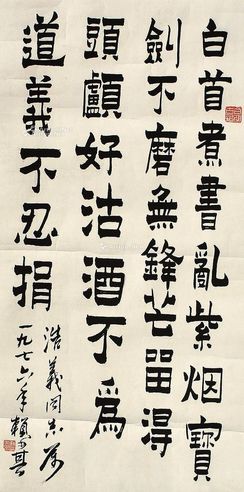 白首煮書亂紫烟寶
劍不磨無鋒芒留得
頭顱好沽酒不為
道義不忍捐
浩義同志屬
一九七六年賴少其